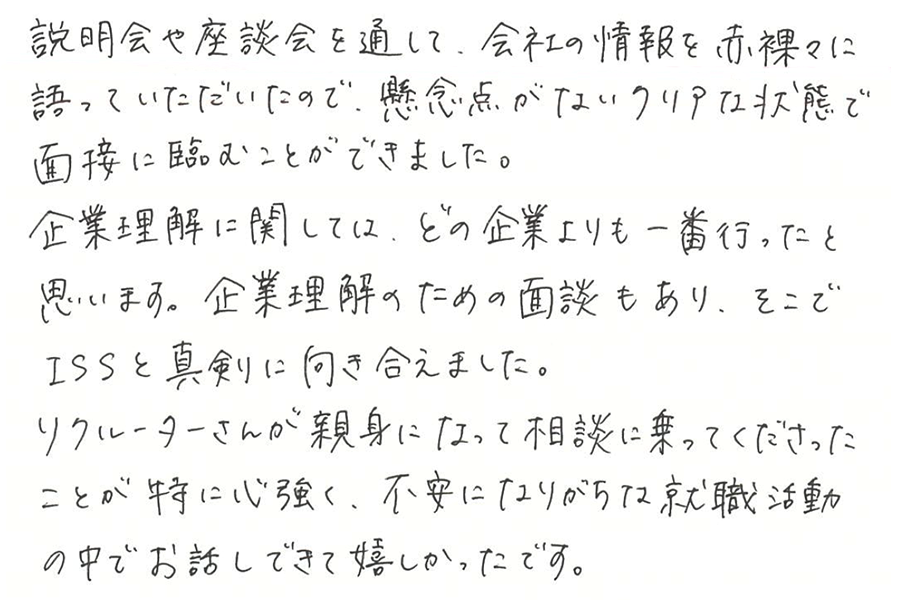 説明会や座談会を通して、会社の情報を赤裸々に
語っていただいたので、懸念点がないクリアな状態で
面接に臨むことができました。
企業理解に関しては、どの企業よりも一番行ったと
思います。企業理解のための面談もあり、そこで
ISSと真剣に向き合えました。
リクルーターさんが親身になって相談に乗ってくださった
ことが特に心強く、不安になりがちな就職活動
の中でお話しできて嬉しかったです。